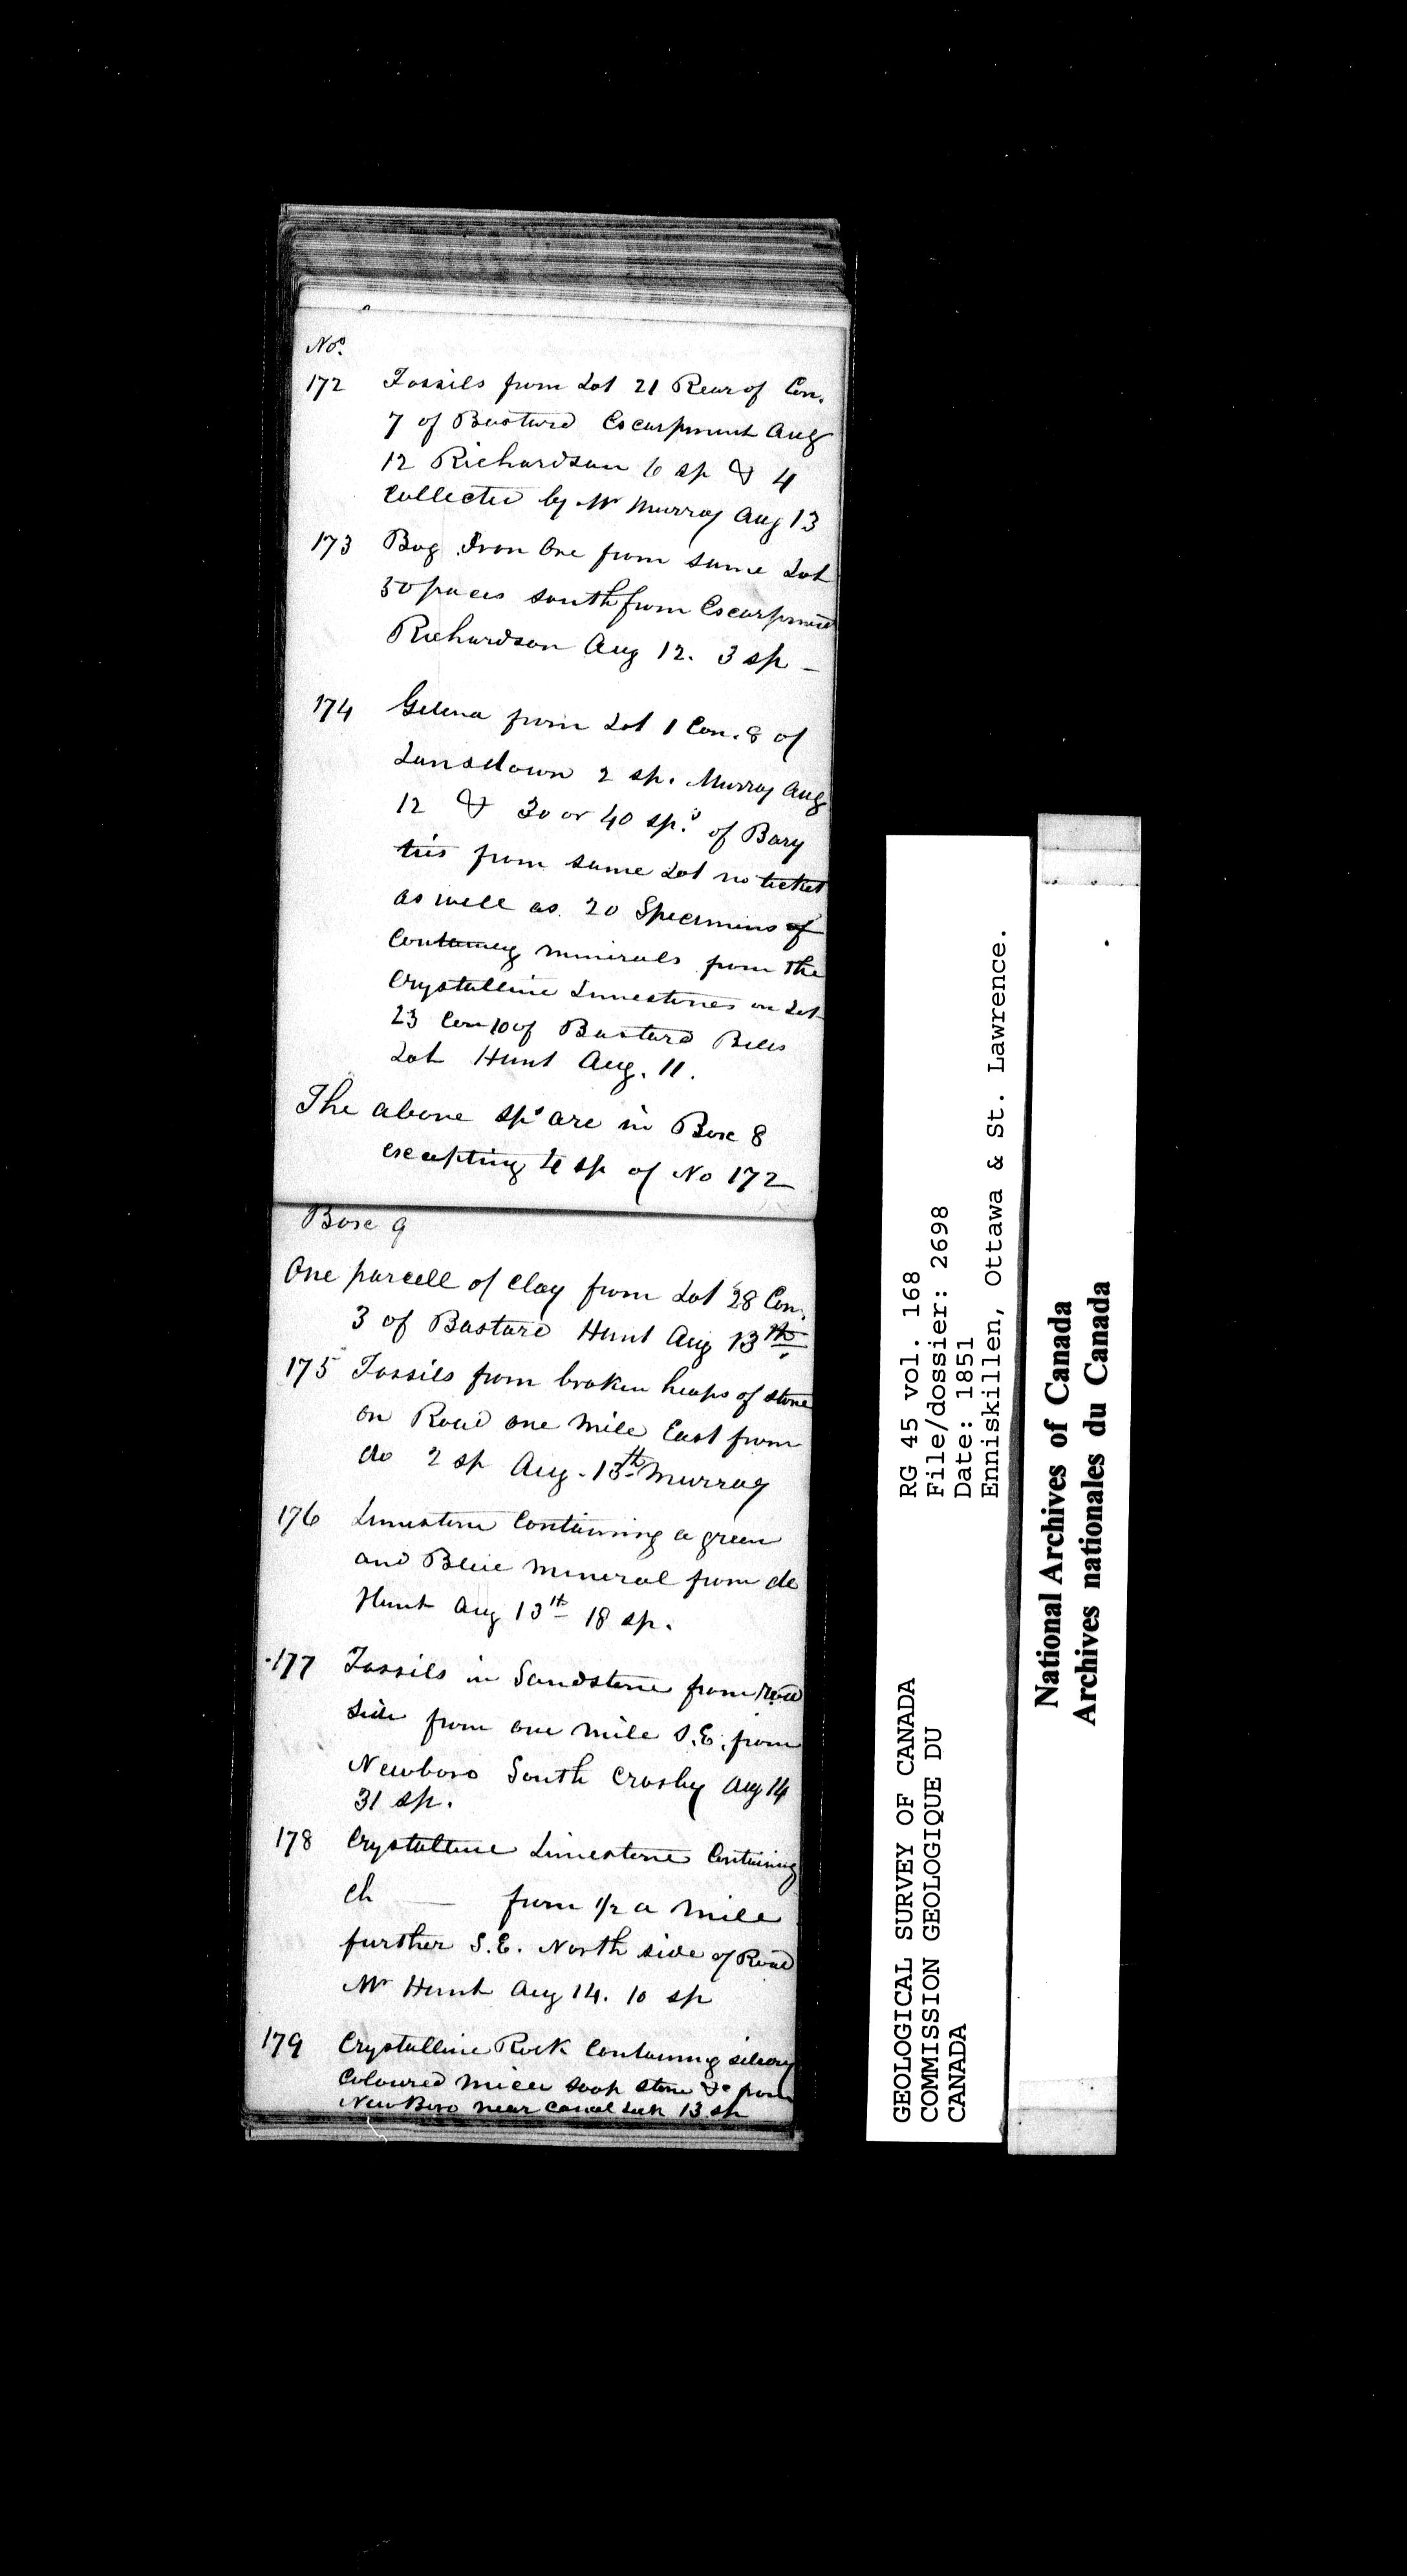 Nos.
172 Fossils from Lot 21 Rear of Con.
7 of Bastard Escarpment Aug
12 Richardson 6 sp & 4
Collected by Mr Murray Aug 13
173 Bog Iron Ore from same Lot
50 paces south from Escarpment
Richardson Aug 12. 3 sp —
174 Gelena from Lot 1 Con. 8 of
Lansdown 2 sp. Murray Aug
12 & 30 or 40 sp.s of Bary
tris from same Lot no ticket
as well as 20 Specimins of
Containing minerals from the
Crystalline Limestones on Lot
23 Con 10 of Bastard
Lot Hunt Aug. 11.
The above sps are in Box 8
excepting 4 sp of No 172
Box 9
One parcell of clay from Lot 28 Con.
3 of Bastard Hunt Aug 13th
175 Fossils from broken heaps of stone
on Road one mile East from
do 2 sp Aug. 13th Murray
176 Limestone Containing a green
and Blue mineral from do
Hunt Aug 13th 18 sp.
177 Fossils in Sandstone from road
side from one mile S.E. from
Newboro South Crosby Aug 14
31 sp.
178 Crystalline Limestone Containing
Ch — from 1/2 a mile
further S.E. North side of Road
Mr Hunt Aug 14. 10 sp
179 Crystalline Rock Containing silvery
Coloured mica soap stone &c from
New Boro near Canal Lock 13 sp
RG 45 vol. 168
File/dossier: 2698
Date: 1851
Enniskillen, Ottawa & St. Lawrence.
GEOLOGICAL SURVEY OF CANADA
COMMISSION GEOLOGIQUE DU
CANADA
National Archives of Canada
Archives nationales du Canada